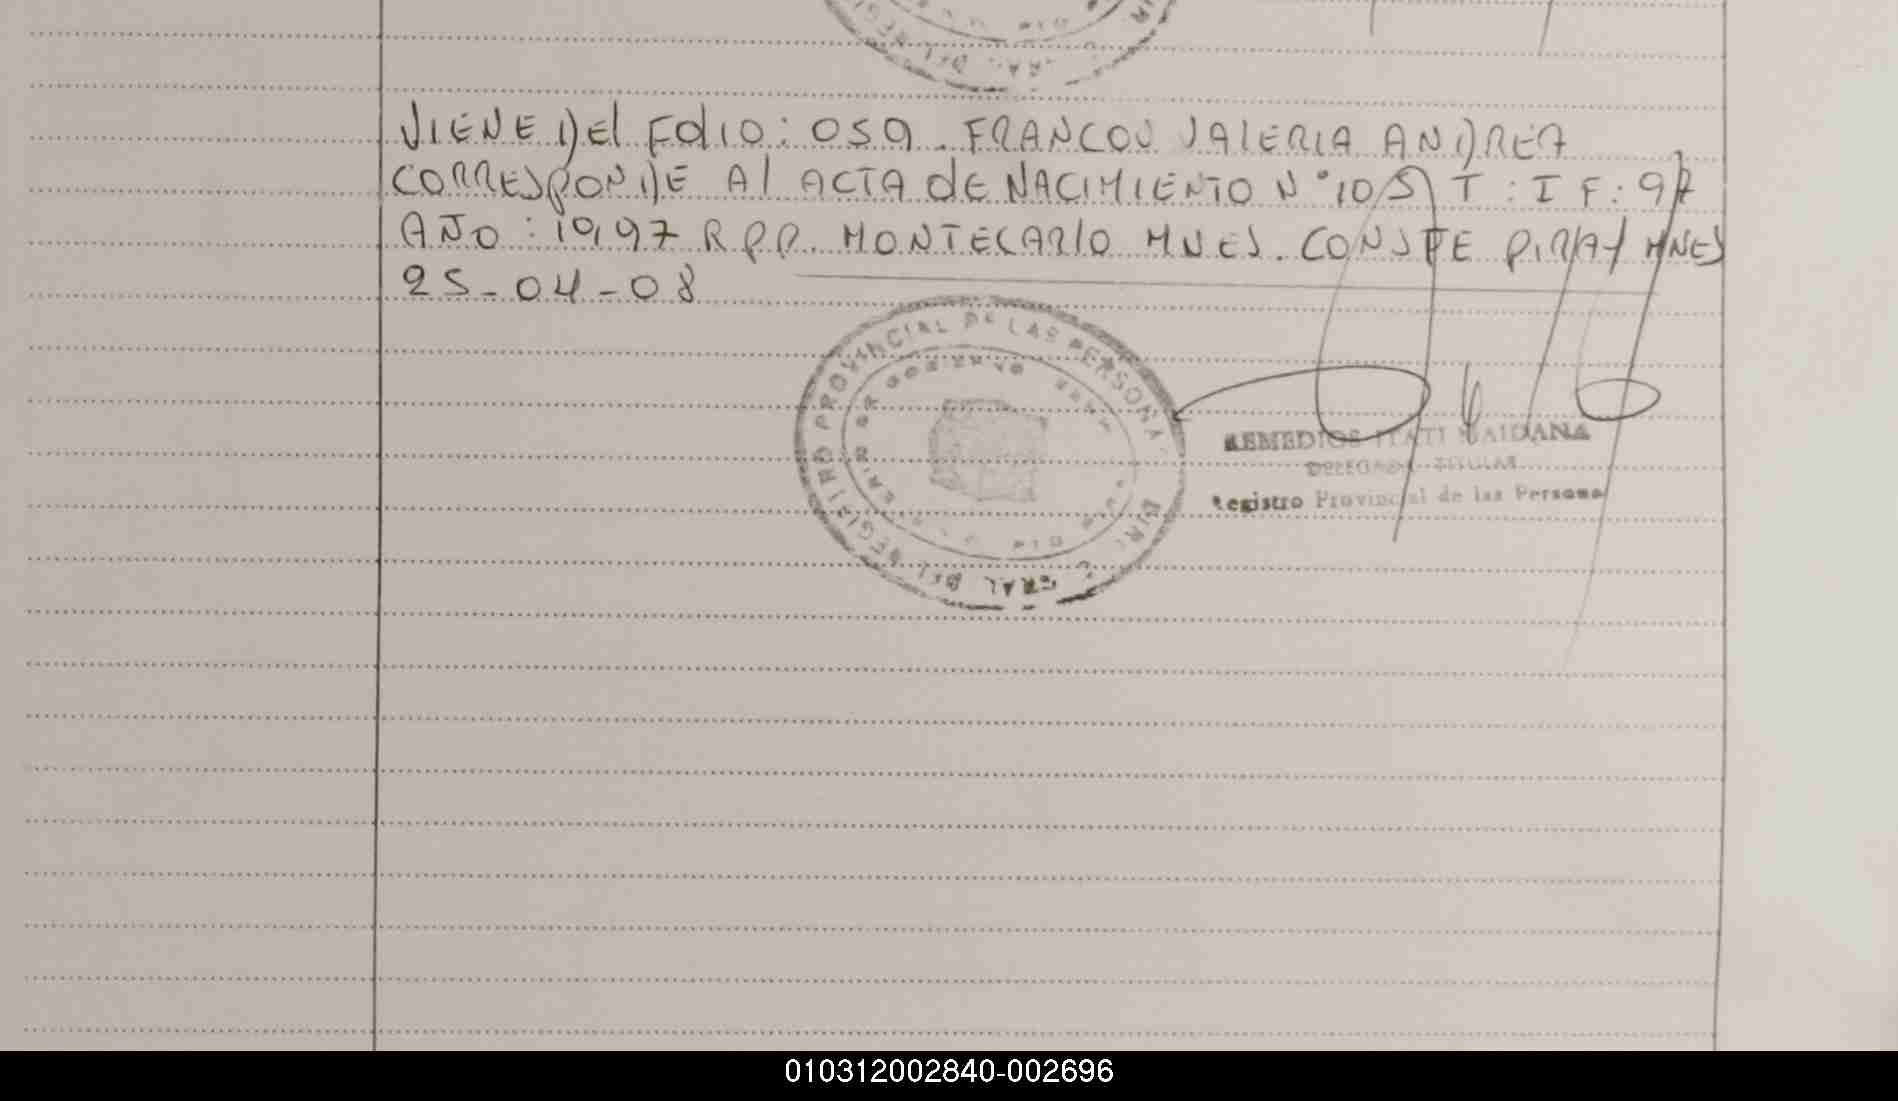 VIENE DEl FOlIO: 059. FRANCOU VALERIA ANDREA
CORRESPONDE Al ACTA dE NACIMIENTO N° 105 T: I F: 97
AÑO: 1997 R P P. MONTECARlO MNES. CONSTE PIRAY MNES
25-04-08
REGISTRO PROVINCIAL DE LAS PERSONAS DIRECC. GRAL DEL
REMEDIOS ITATI MAIDANA
DELEGADA TITULAR
Registro Provincial de las Personas
010312002840-002696